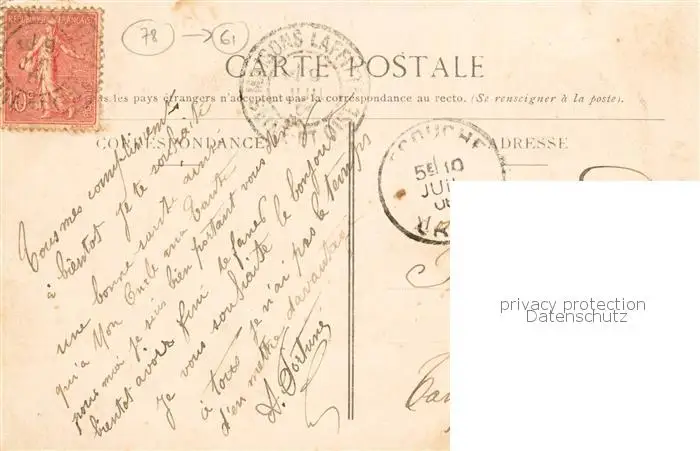 REPUBLIQUE FRANÇAISE
10
78 → 61
MAISONS LAFF
CARTE POSTALE
les pays étrangers n'acceptent pas la correspondance au recto. (Se renseigner à la poste).
CORRESPONDANCE
ADRESSE
5E 10
JUIL
Tous mes compliments
à bientôt je te souhaite
une bonne santé ainsi
qu'a Mon Oncle ma Tante
pour moi je suis bien portant vous verrez
bientot avoir fini se fanes
Je vous souhaite le bonjour
à tous je n'ai pas le temps
d'en mettre davantage
A. Fortune
privacy protection
Datenschutz